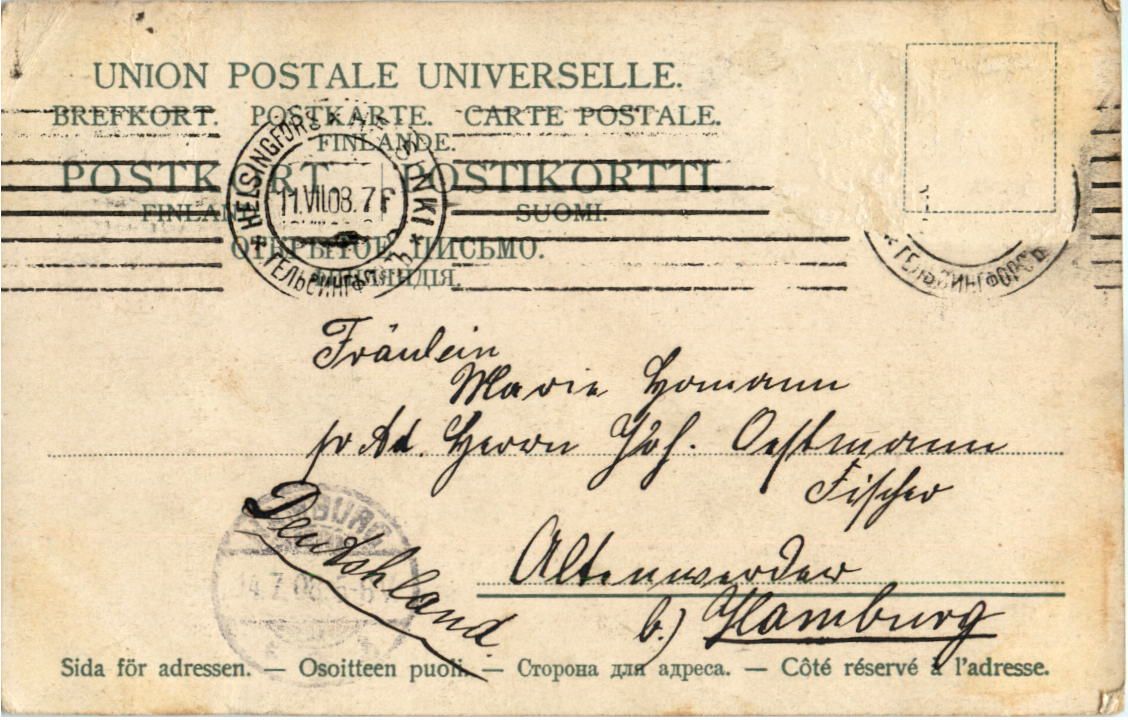 UNION POSTALE UNIVERSELLE.
BREFKORT. POSTKARTE. CARTE POSTALE.
FINLANDE.
POSTKORT POSTIKORTTI.
FINLAND SUOMI.
ОТКРЫТОЕ ПИСЬМО.
ФИНЛЯНДІЯ.
HELSINGFORS HELSINKI
11.VII.08. 7 F
ГЕЛЬСИНГФОРСЪ
ГЕЛЬСИНГФОРСЪ
Fräulein
Marie Homann
pr Ad. Herrn Joh. Oestmann
Fischer
Deutschland.
Altenwerder
b.) Hamburg
14.7.08
Sida för adressen. — Osoitteen puoli. — Сторона для адреса. — Côté réservé à l'adresse.